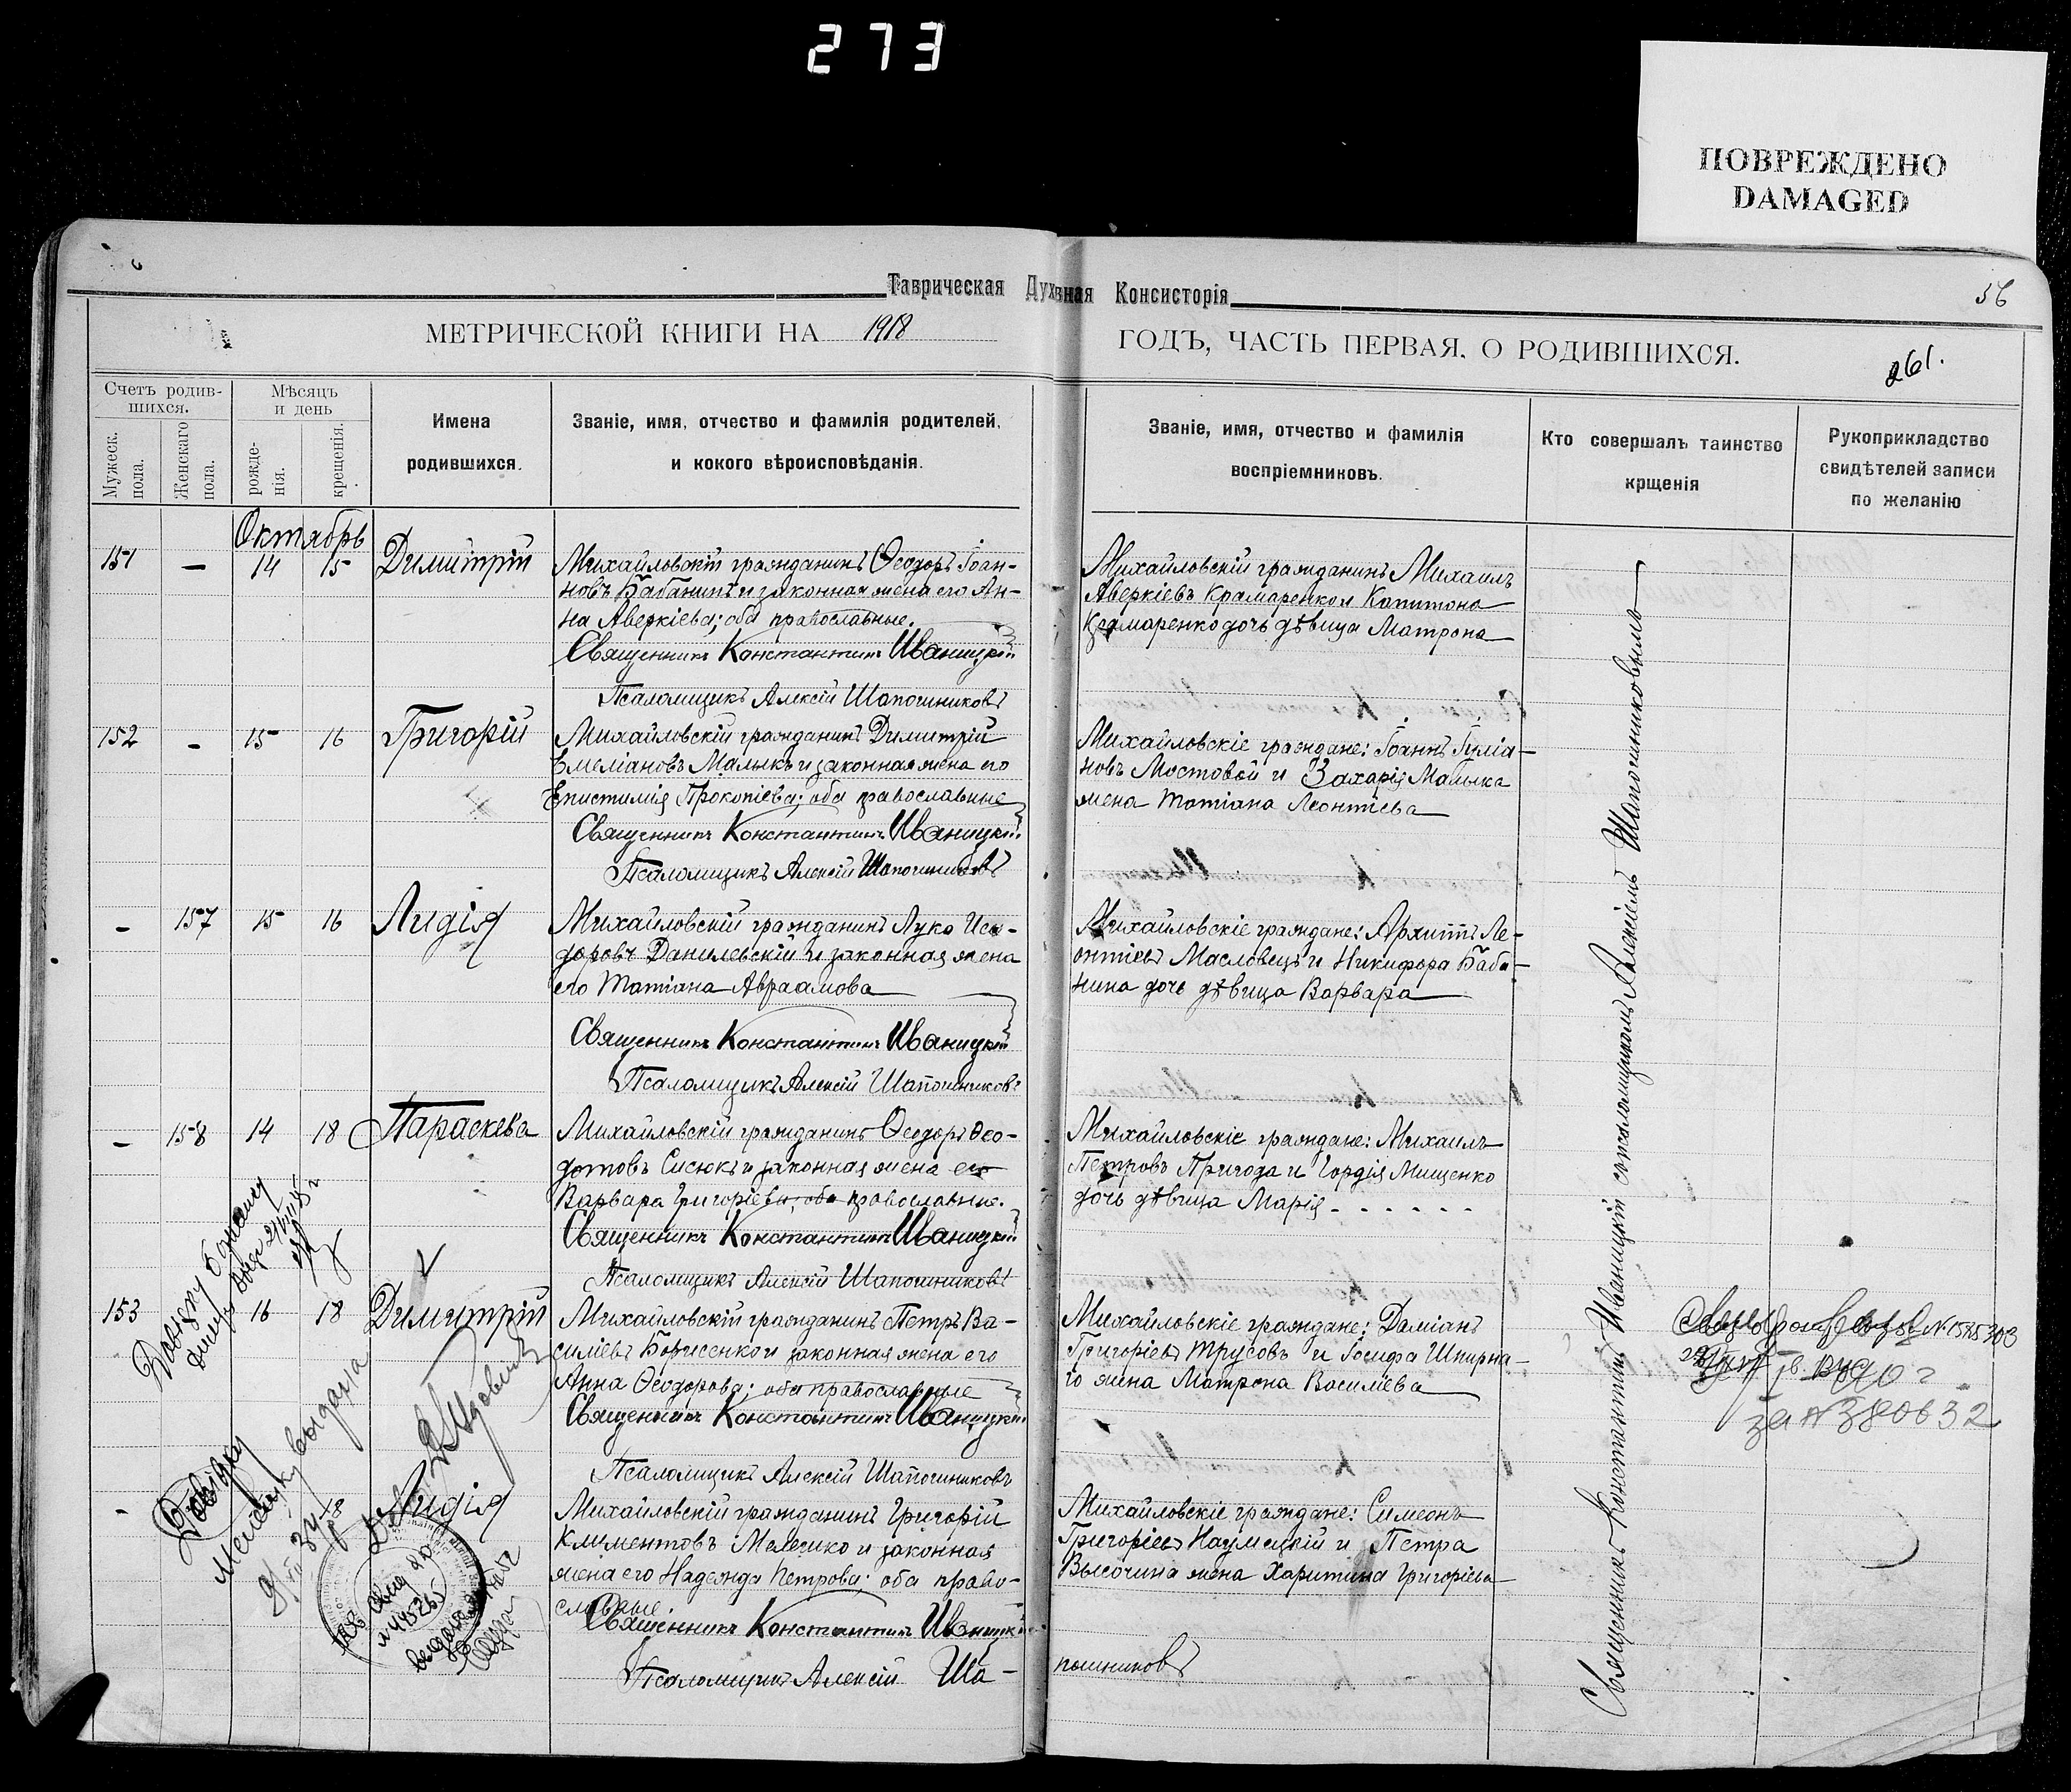 273
ПОВРЕЖДЕНО
DAMAGED
Таврическая Духовная Консисторія
56
МЕТРИЧЕСКОЙ КНИГИ НА 1918
ГОДЪ, ЧАСТЬ ПЕРВАЯ, О РОДИВШИХСЯ.
261.
Счетъ родив-
шихся.
Мужеск.
пола.
Женскаго
пола.
Мѣсяцъ
и день
рожде-
нія.
крещенія.
Имена
родившихся.
Званіе, имя, отчество и фамилія родителей,
и кокого вѣроисповѣданія.
Званіе, имя, отчество и фамилія
воспріемниковъ.
Кто совершалъ таинство
крщенія
Рукоприкладство
свидѣтелей записи
по желанію
Октябрь
151 — 14 15 Димитрій
Михайловскій гражданинъ Ѳеодоръ Іоан-
новъ Бабанинъ и законная жена его Ан-
на Аверкіева; оба православные.
Священникъ Константинъ Иваницкій
Псаломщикъ Алексій Шапошниковъ
Михайловскій гражданинъ Михаилъ
Аверкіевъ Крамаренко и Капитона
Крамаренко дочь дѣвица Матрона
152 - 15 16 Григорій
Михайловскій гражданинъ Димитрій
Емеліановъ Малыкъ и законная жена его
Епистимія Прокопіева; оба православные
Священникъ Константинъ Иваницкій
Псаломщикъ Алексій Шапошниковъ
Михайловскіе граждане: Іоаннъ Іуліа-
новъ Мостовой и Захарія Малыка
жена Татіана Леонтіева
- 157 15 16 Лидія
Михайловскій гражданинъ Лука Иси-
доровъ Данилевскій и законная жена
его Татіана Авраамова
Священникъ Константинъ Иваницкій
Псаломщикъ Алексій Шапошниковъ
Михайловскіе граждане: Архиппъ Ле-
онтіевъ Масловецъ и Никифора Баба-
нина дочь дѣвица Варвара
- 158 14 18 Параскева
Михайловскій гражданинъ Ѳеодоръ Ѳео-
дотовъ Сисюкъ и законная жена его
Варвара Григоріева; оба православные.
Священникъ Константинъ Иваницкій
Псаломщикъ Алексій Шапошниковъ
Михайловскіе граждане: Михаилъ
Петровъ Пригода и Гордія Мищенко
дочь дѣвица Марія - - - - - -
153 16 18 Димитрій
Михайловскій гражданинъ Петръ Ва-
силіевъ Борисенко и законная жена его
Анна Ѳеодорова; оба православные
Священникъ Константинъ Иваницкій
Псаломщикъ Алексій Шапошниковъ
Михайловскіе граждане: Даміанъ
Григоріевъ Трусовъ и Іосифа Шпирна-
го жена Матрона Василіева
за №380632
- Лидія
Михайловскій гражданинъ Григорій
Климентовъ Мелешко и законная
жена его Надежда Петрова; оба право-
славные.
Священникъ Константинъ Иваницкій
Псаломщикъ Алексій Ша-
пошниковъ
Михайловскіе граждане: Симеонъ
Григоріевъ Наумецкій и Петра
Высочина жена Харитина Григоріева
Довідку
выдана
Священникъ Константинъ Иваницкій съ псаломщикомъ Алексіемъ Шапошниковымъ